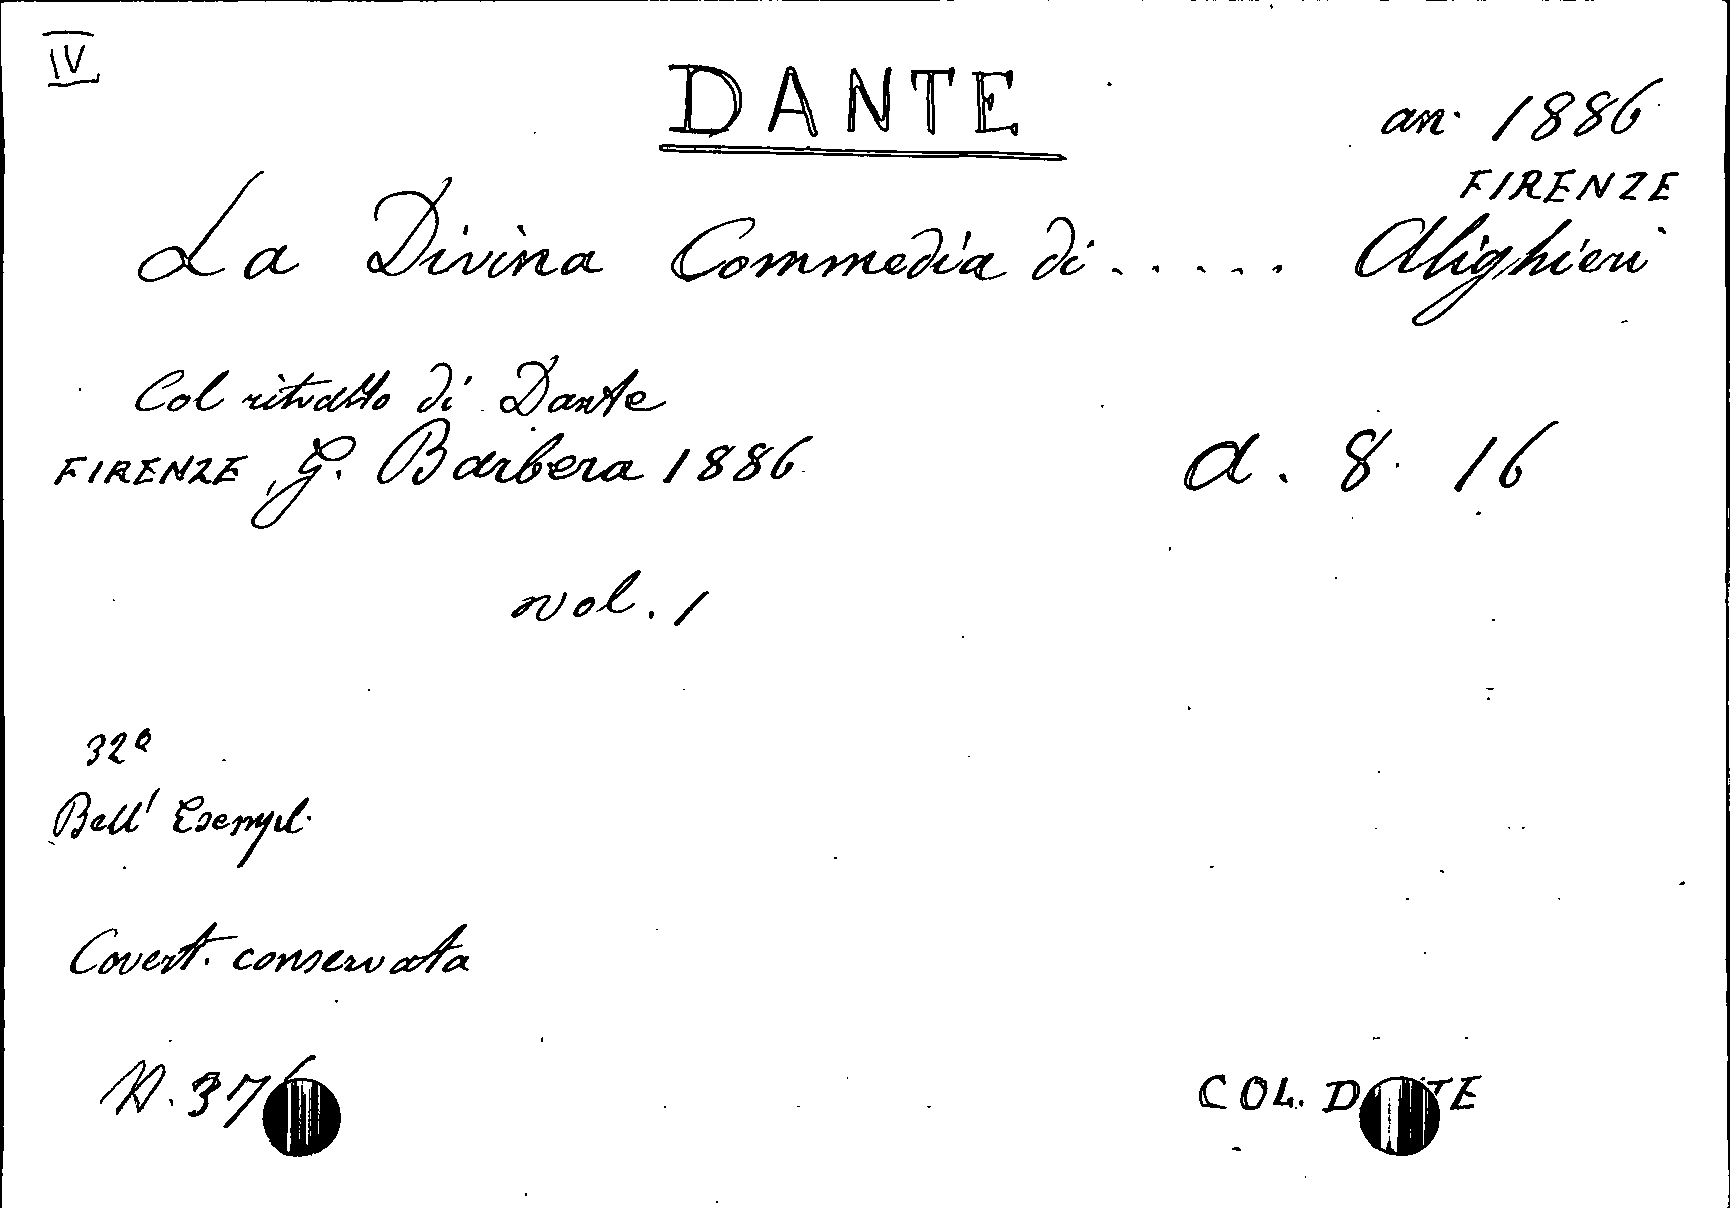 IV
DANTE
an. 1886
FIRENZE
La Divina Commedia di ..... Alighieri
Col ritratto di Dante
FIRENZE, G. Barbera 1886
a. 8. 16
vol. 1
32º
Bell' Esempl.
Covert. conservata
N. 37
COL. DANTE